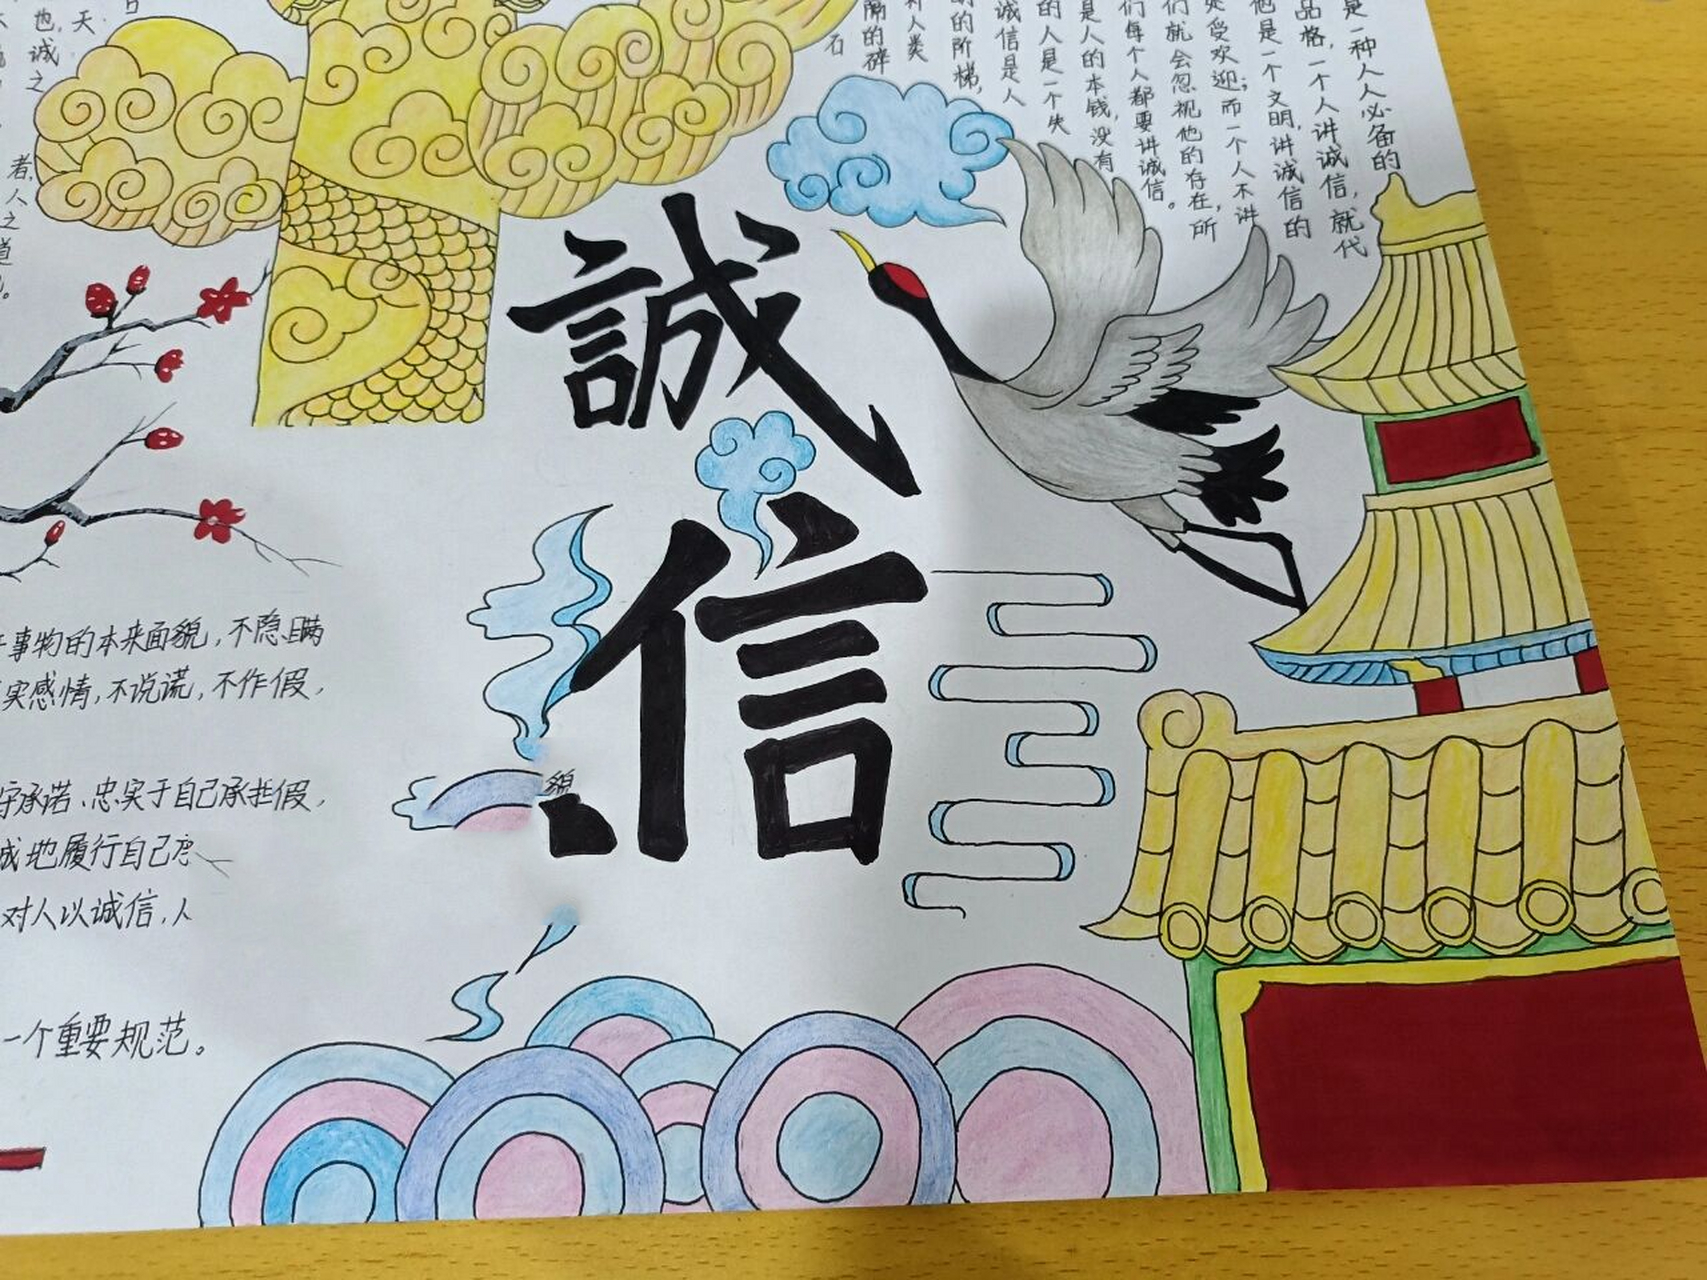 是一种人人必备的
品格，一个人讲诚信，就代
他是一个文明，讲诚信的
处受欢迎；而一个人不讲
们就会忽视他的存在，所
们每个人都要讲诚信。
是人的本钱，没有
的人是一个失
诚信是人
的阶梯，
对人类
隔的碎
石
天
也，诚之
者，人之道
誠信
事物的本来面貌，不隐瞒
实感情，不说谎，不作假，
守承诺、忠实于自己承假，
貌
地履行自己
对人以诚信，人
一个重要规范。